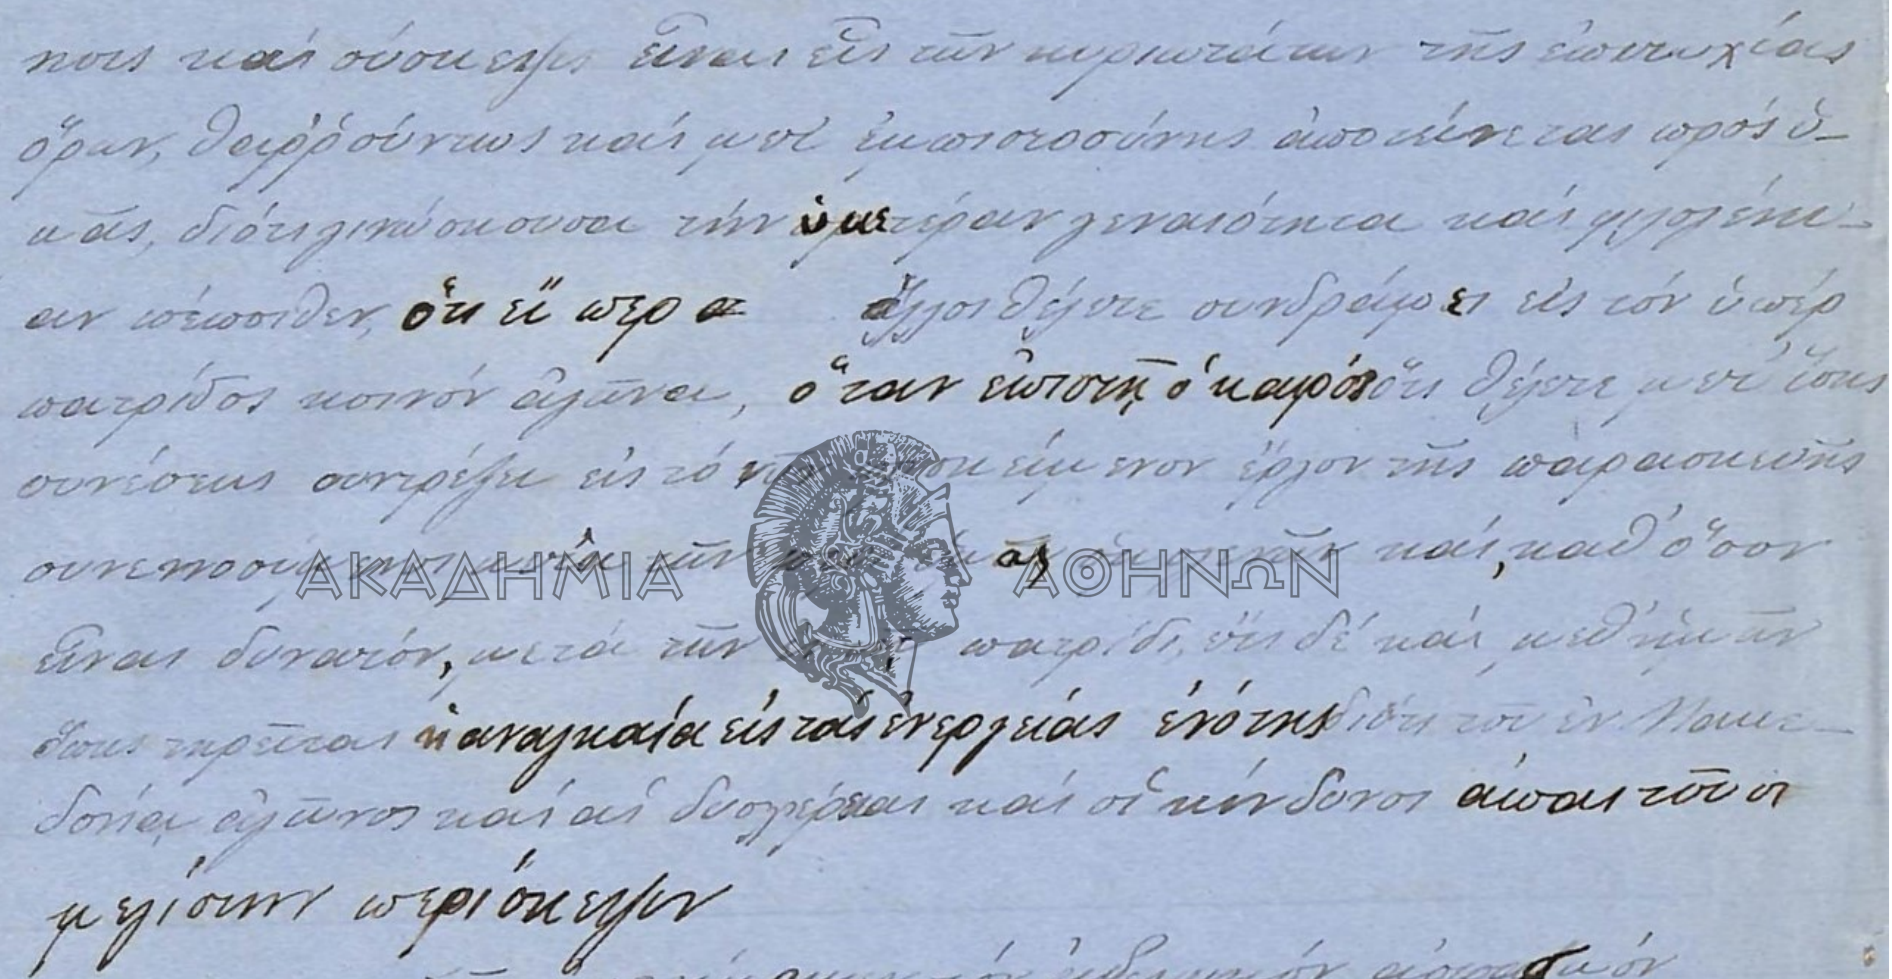 καὶ σύσκεψις εἶναι εἷς τῶν κυριωτάτων τῆς ἐπιτυχίας
ὅρων, θαῤῥούντως καὶ μετ' ἐμπιστοσύνης ἀποτείνεται πρὸς ὑ-
μᾶς, διότι γινώσκουσα τὴν ὑμετέραν γενναιότητα καὶ φιλογένει-
αν πέποιθεν, ὅτι εἴπερ ἄλλοι θέλετε συνδράμει εἰς τὸν ὑπὲρ
πατρίδος κοινὸν ἀγῶνα, ὅταν ἐπιστῇ ὁ καιρός ὅτι θέλετε μετ' ἴσης
συνέσεως συντρέξει εἰς τὸ νῦν ἔργον τῆς παρασκευῆς
μετὰ τῶν καὶ, καθ' ὅσον
εἶναι δυνατόν, μετὰ τῶν πατρίδι, ἔτι δὲ καὶ μεθ' ἡμῶν
ὅπως τηρῆται ἡ ἀναγκαία εἰς τὰς ἐνεργείας ἑνότης διότι τοῦ ἐν Μακε-
δονίᾳ ἀγῶνος καὶ αἱ δυσχέρειαι καὶ οἱ κίνδυνοι ἀπαιτοῦσι
μεγίστην περίσκεψιν